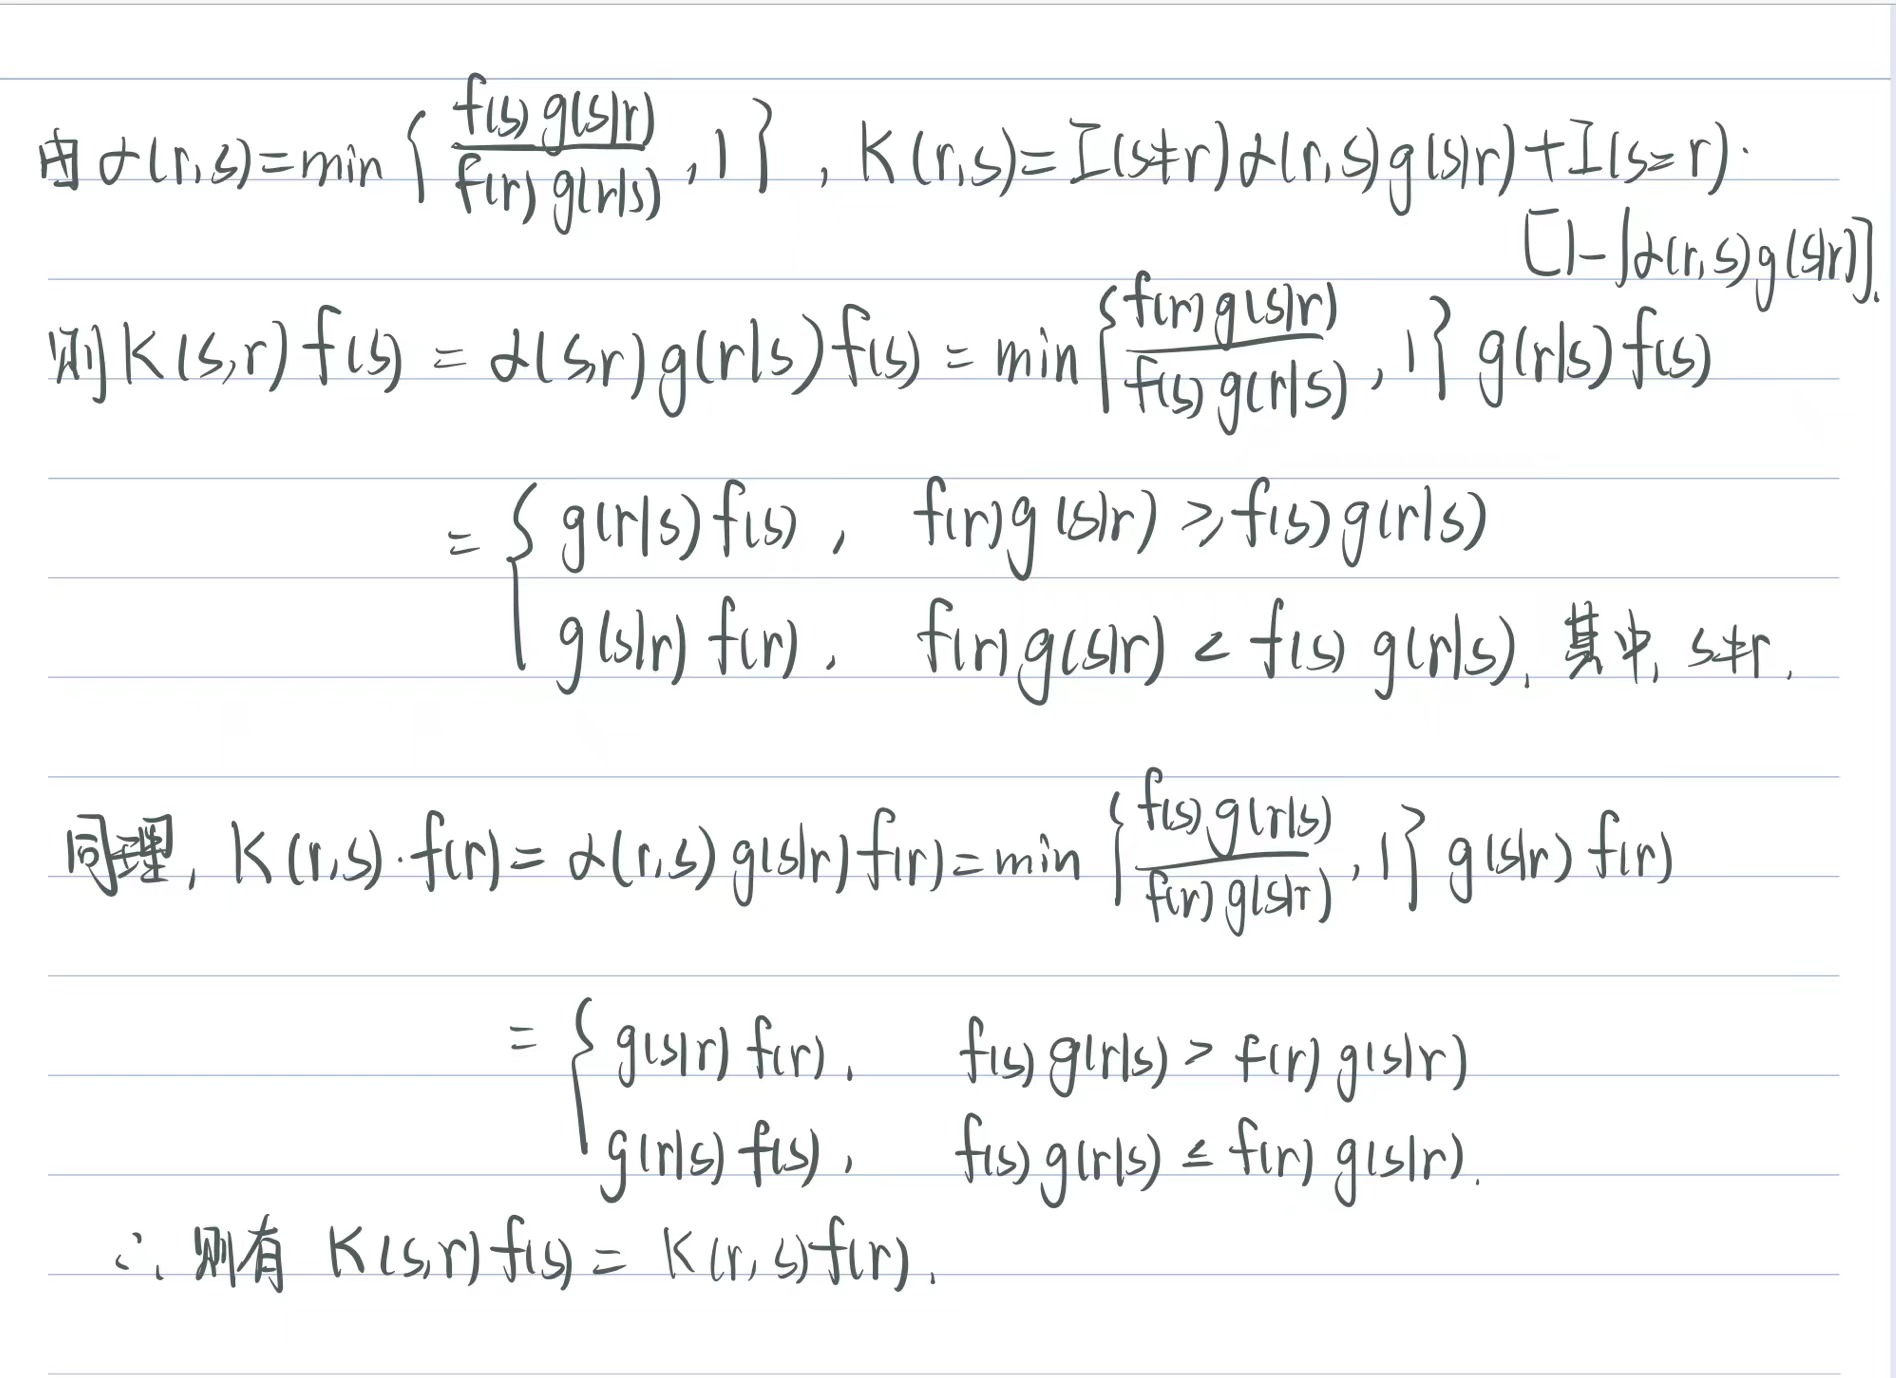 由 α(r,s)=min { f(s)g(s|r) / f(r)g(r|s) , 1 } , K(r,s)=I(s≠r)α(r,s)g(s|r)+I(s=r)·
[1-∫α(r,s)g(s|r)].
则 K(s,r)f(s) = α(s,r)g(r|s)f(s) = min { f(r)g(s|r) / f(s)g(r|s) , 1 } g(r|s)f(s)
= { g(r|s)f(s) , f(r)g(s|r) ≥ f(s)g(r|s)
g(s|r)f(r) , f(r)g(s|r) < f(s)g(r|s), 其中, s≠r.
同理, K(r,s)·f(r) = α(r,s)g(s|r)f(r) = min { f(s)g(r|s) / f(r)g(s|r) , 1 } g(s|r)f(r)
= { g(s|r)f(r) , f(s)g(r|s) > f(r)g(s|r)
g(r|s)f(s) , f(s)g(r|s) ≤ f(r)g(s|r).
∴ 则有 K(s,r)f(s) = K(r,s)f(r).